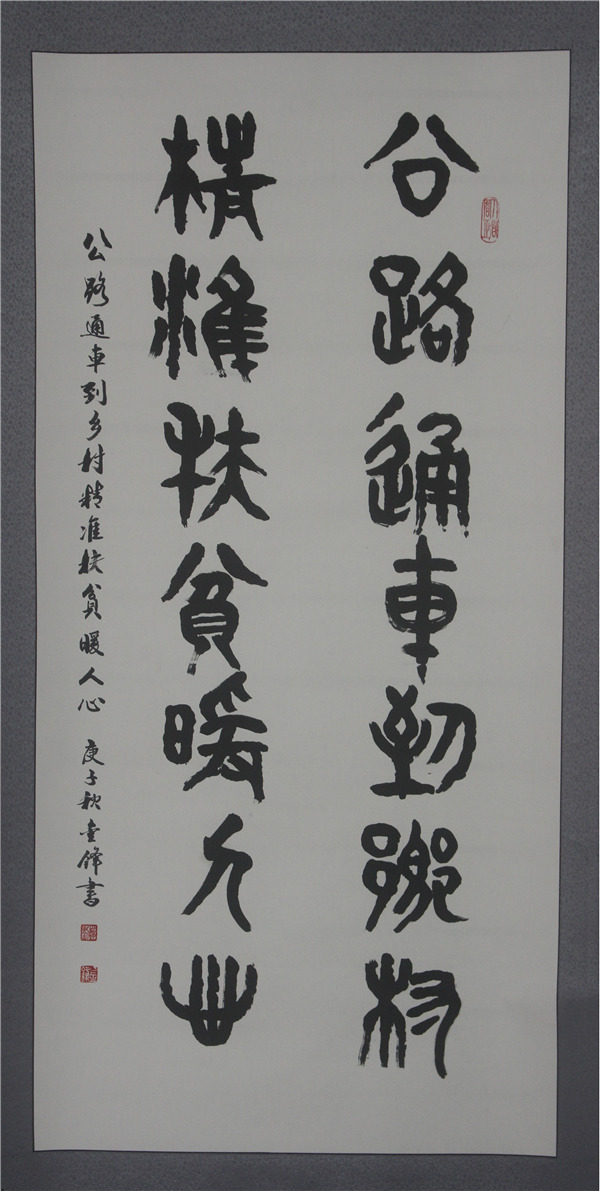 公路通車到鄉村
精准扶貧暖人心
公路通車到乡村精准扶貧暖人心 庚子秋 書